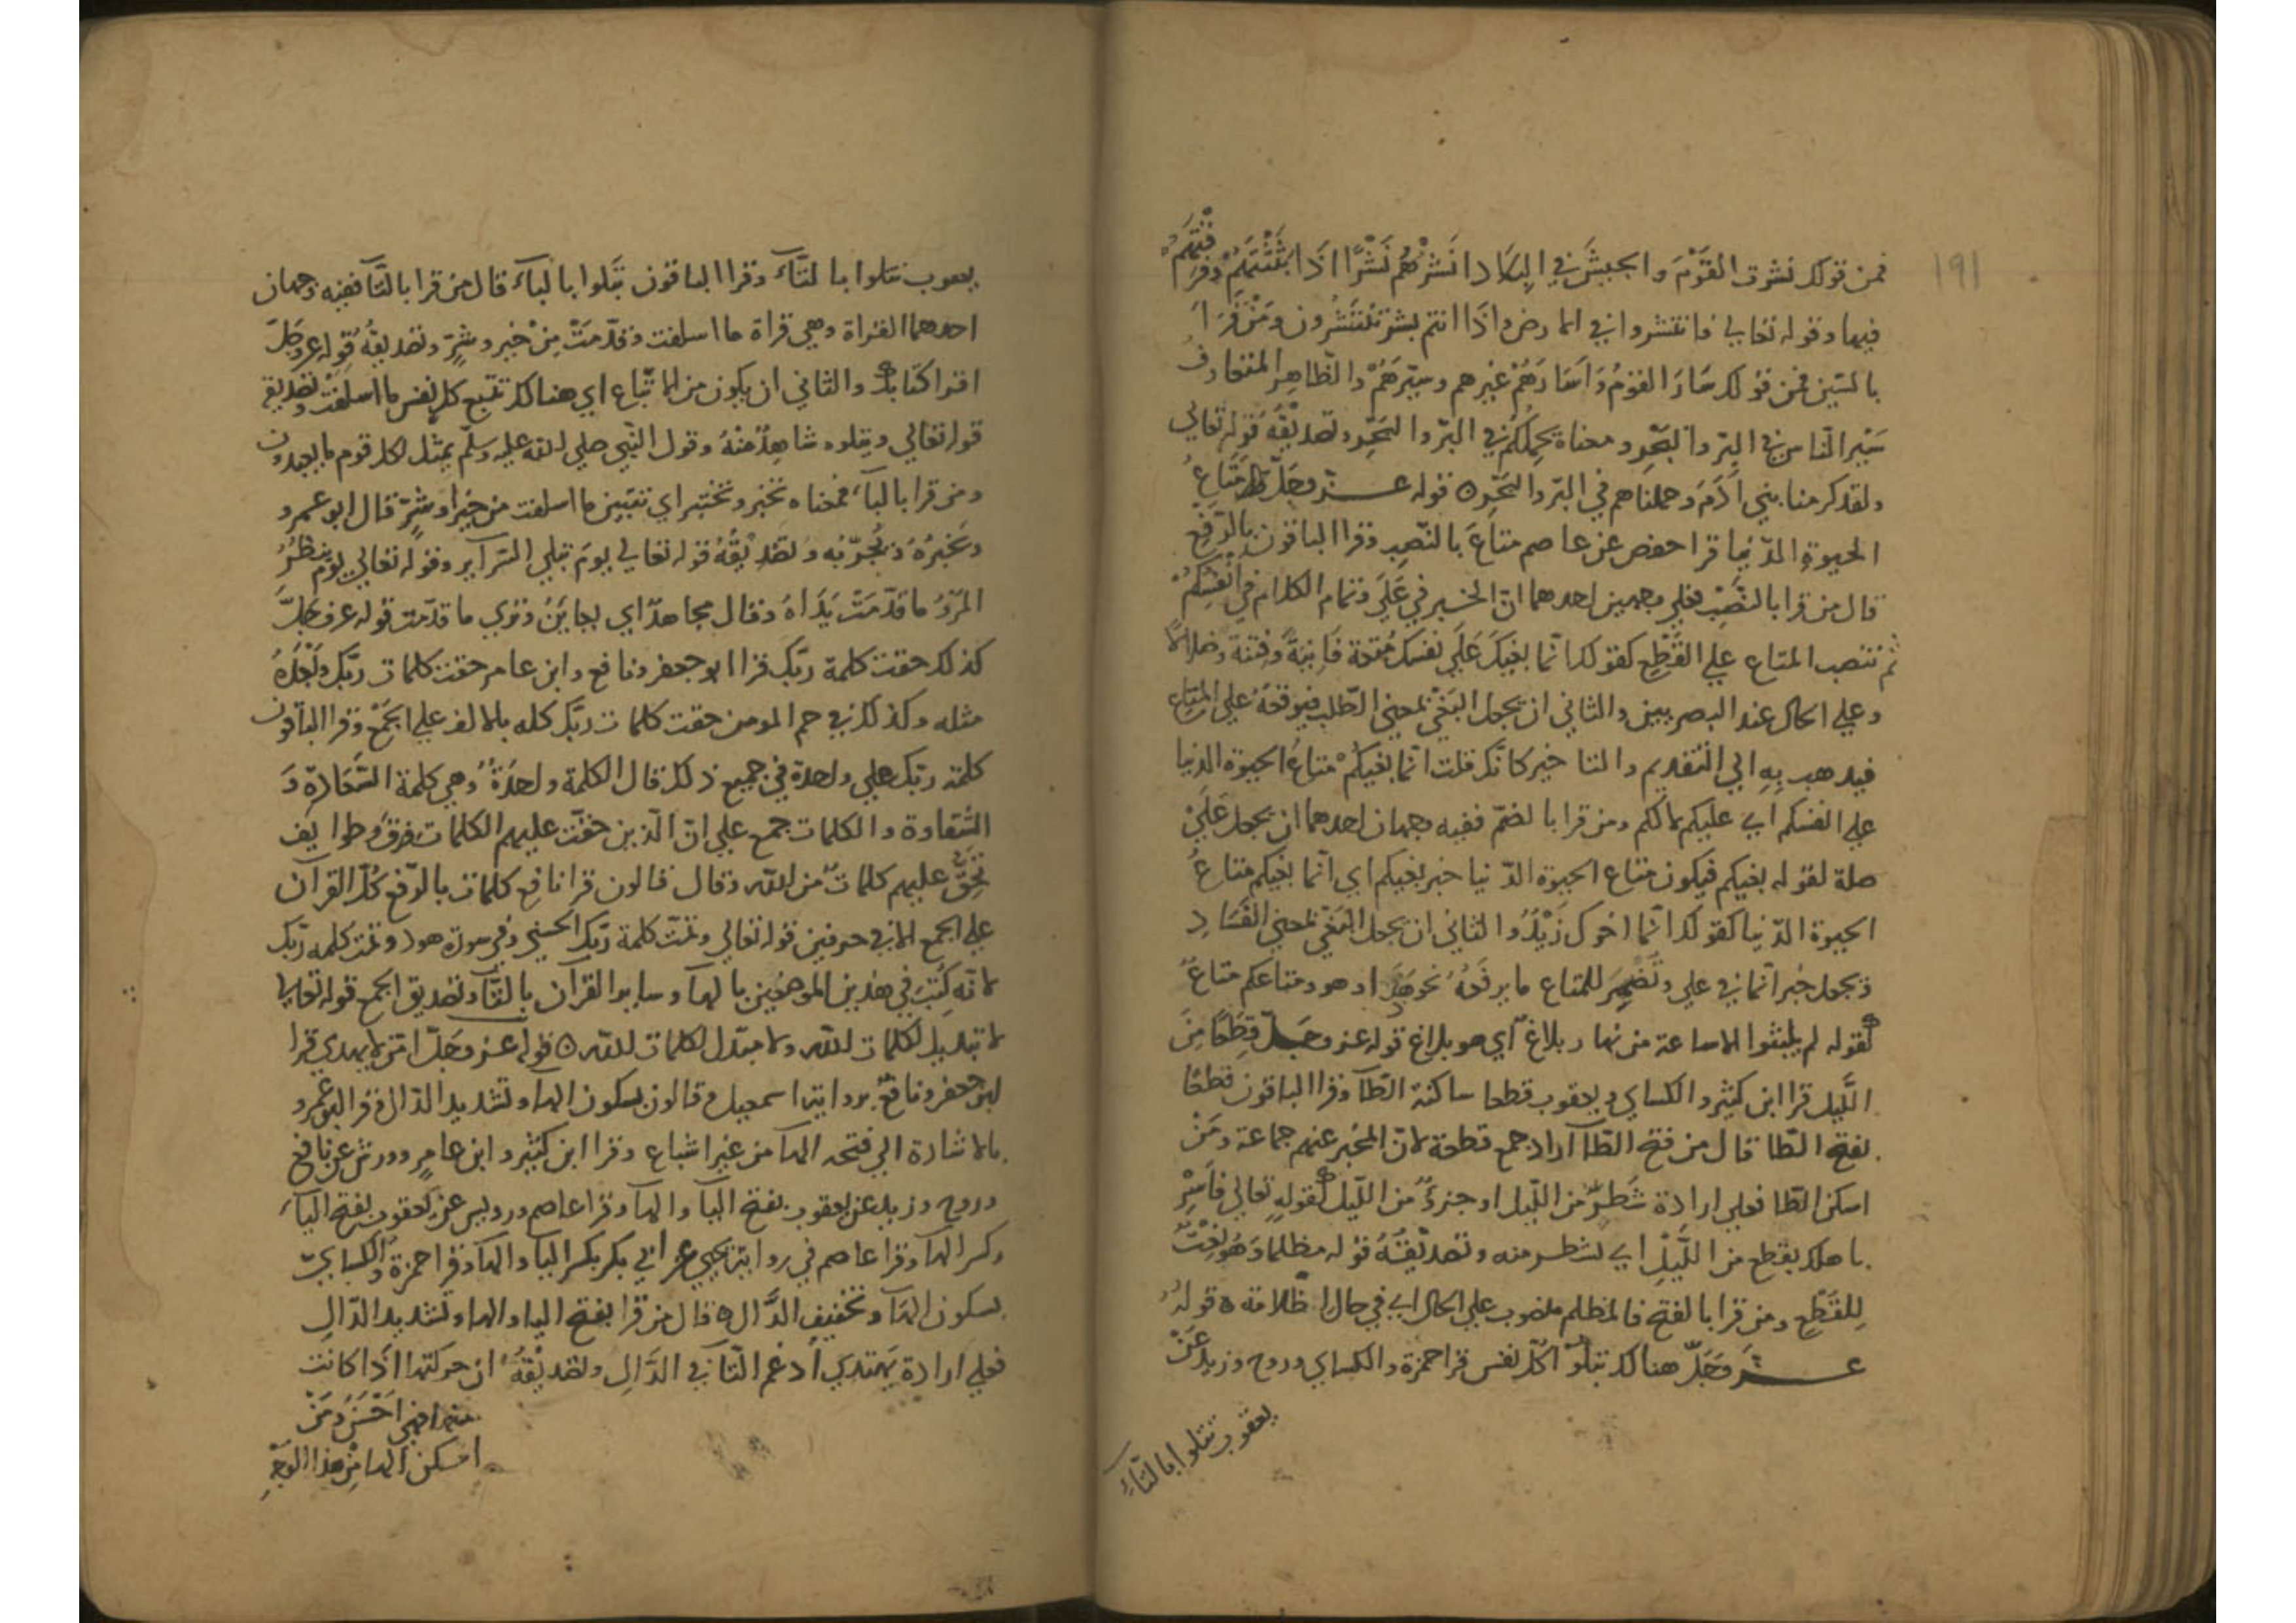 ١٩١
فمن قولك نشرت القَوْمَ والجيشَ في البِلَاد انشُرُهُم نَشْرًا اذَا بَثَثْتَهُمْ وفرّقْتَهُمْ
فيها وقوله تعالى فانتشروا في الارض واذَا انتم بشر تَنْتَشِرُون ومَنْ قَرَأَ
بالسّين فمن قولك سَارَ القومُ وَاَسَارَهُمْ غيرهم وسيّرَهُمْ والظّاهِرِ المتعارفُ
سَيْر النّاس في البِرّ والبَحْرِ ومعناه يحملُكُمْ في البَرّ والبَحْرِ وتصديقُهُ قوله تعالى
ولقد كرمنا بني اٰدَمَ وحملناهم في البَرّ والبَحْرِ ه قوله عزّ وجَلّ مَتَاعَ
الحيوة الدّنيا قرا حفص عن عاصم متاعَ بالنّصب وقرا الباقون بالرّفع
قال من قرا بالنَّصْبِ فعلى وجهين احدهما انّ الخبر في عَلَى وتمام الكلام في انْفُسِكُمْ
ثم تنصب المتاع علي القَطْعِ كقولك انّما بغيكَ عَلَي نفسك مُتعَة فَانِيَةً وفتنة وضلالًا
وعلي الحال عند البصريين والثاني ان يجعل البَغْيَ بمعنى الطّلب فيوقعَهُ علي المتاع
فيذهب بِهِ الي التّقديم والتاخير كانّك قلت انّما بغيكُمْ متاعُ الحيوة الدنيا
علي انفسكم اي عليكم لا لكم ومن قرا بالضّم ففيه وجهان احدهما ان يجعل عَلَيْ
صلة لقوله بغيكم فيكون متاع الحيوة الدّنيا خبر بغيكم اي انّما بغيكم متاعُ
الحيوة الدّنيا كقولك انّما اخوك زَيْدٌ والثاني ان يجعل البَغْيَ بمعنى الفَسَادِ
ويجعل خبر انّما في علي وتُضْمِرَ للمتاع ما يرفَعُهُ نحو هَذَا وهو ومتاعكم متاعٌ
كقوله لم يلبثوا الا ساعة من نهار بلاغ اي هو بلاغ قوله عز وجَلّ قِطَعًا مِنَ
اللَّيل قرا ابن كثير والكساي ويعقوب قطعا ساكنة الطّآ وقرا الباقون قطعًا
بفتح الطّا قال من فتح الطّاآ اراد جمع قطعة لانّ المخبر عنهم جماعة ومَنْ
اسكن الطّا فعلى ارادة شَطْرٍ من اللّيل او جزءٌ من اللّيل كقوله تعالي فَاسْرِ
باهلك بقطع من اللَّيْلِ اي بشطر منه وتصديْقُهُ قوله مظلما وَهُوَ نَعْتٌ
لِلقَطْعِ ومن قرا بالفتح فالمظلم منصوب علي الحال اي في حال اظلامه ه قوله
عزَّ وَجَلّ هنالك تَبْلُوْا كلّ نفس قرا حمزة والكساي وروح وزيد عَنْ
يعقوب تتلوا بالتّاءِ
يعقوب تتلوا بالتّآء وقرا الباقون تَبْلوا بالبآء قال من قرا بالتّآ ففيه وجهان
احدهما القراة وهي قراة ما اسلفت وقدّمَتْ مِنْ خَير وشرٍّ وتصديقُهُ قوله عز وجَلّ
اقرا كتابك والثاني ان يكون من الاتّباع اي هنالك تتبع كل نفس ما اسلفَتْ وتصديقه
قوله تعالى ويتلوه شاهِدٌ مِنْهُ وقول النّبي صلي الله عليه وسلّم يمثل لكل قوم ما يعبدون
ومن قرا بالبآء فمعناه تخبر وتختبر اي تتبيّن ما اسلفت من خير او شرٍّ قال ابو عمرو
وتَخبرُهُ وتُجرّبُه وتصديْقُهُ قوله تعالى يومَ تبلي السّرآير وقوله تعالى يومَ ينظُرُ
المَرْءُ ما قدّمَتْ يَدَاهُ وقال مجاهدٌ اي يعاينُ وتري ما قدّمت قوله عز وجَلَّ
كذلك حقت كلمة ربّك قرا ابو جعفر ونافع وابن عامر حقت كلمات ربّك وَبَعْدَهُ
مثله وكذلك في حم المومن حقت كلمات ربّك كله بالالف علي الجَمْع وقرا الباقون
كلمة ربّك علي واحدة في جميع ذلك قال الكلمة واحدَةٌ وهي كلمة السَّعَادة وَ
الشّقاوة والكلمات جمع علي انّ الّذين حقّت عليهم الكلمات فرقٌ وطوايف
تَحِقُّ عليهم كلماتٌ من الله وقال قالون قرا نافع كلمات بالرّفع كُلّ القرآن
علي الجمع الا في حرفين قوله تعالي وتمّت كلمة ربّك الحسني وفي سورة هود وتمت كلمه ربّك
لانّه كُتِبَ في هذين الموضعين بالهآ وساير القرآن بالتآ وتصديق الجمع قوله تعالى
لا تبديل لكلمات الله ولا مبدّل لكلمات الله ه قوله عز وجَلّ امّن لا يهدي قرا
ابو جعفر ونافعٌ برواية اسمعيل وقالون بسكون الهاء وتشديد الدّال وقرا ابو عمرو
بالاشارة الي فتحة الهآ من غير اشباع وقرا ابن كثير وابن عامرٍ وورش عن نافع
وروح وزيد عن يعقوب بفتح اليآ والهآ وقرا عاصم ورويس عن يعقوب بفتح اليآء
وكسر الهآ وقرا عاصم في رواية يحيي عن ابي بكر بكسر اليآ والهآ وقرا حمزة والكسايّ
بسكون الهآ وتخفيف الدَّال ه قال من قرا بفتح اليا والها وتشديد الدّالِ
فعلي ارادة يهتدي ادغم التّآ في الدَّالِ وتصديْقُهُ ان حركتها اذا كانت
اَحْسَنُ ومَنْ
اسكن الها مِنْ هذا الوَجْهِ